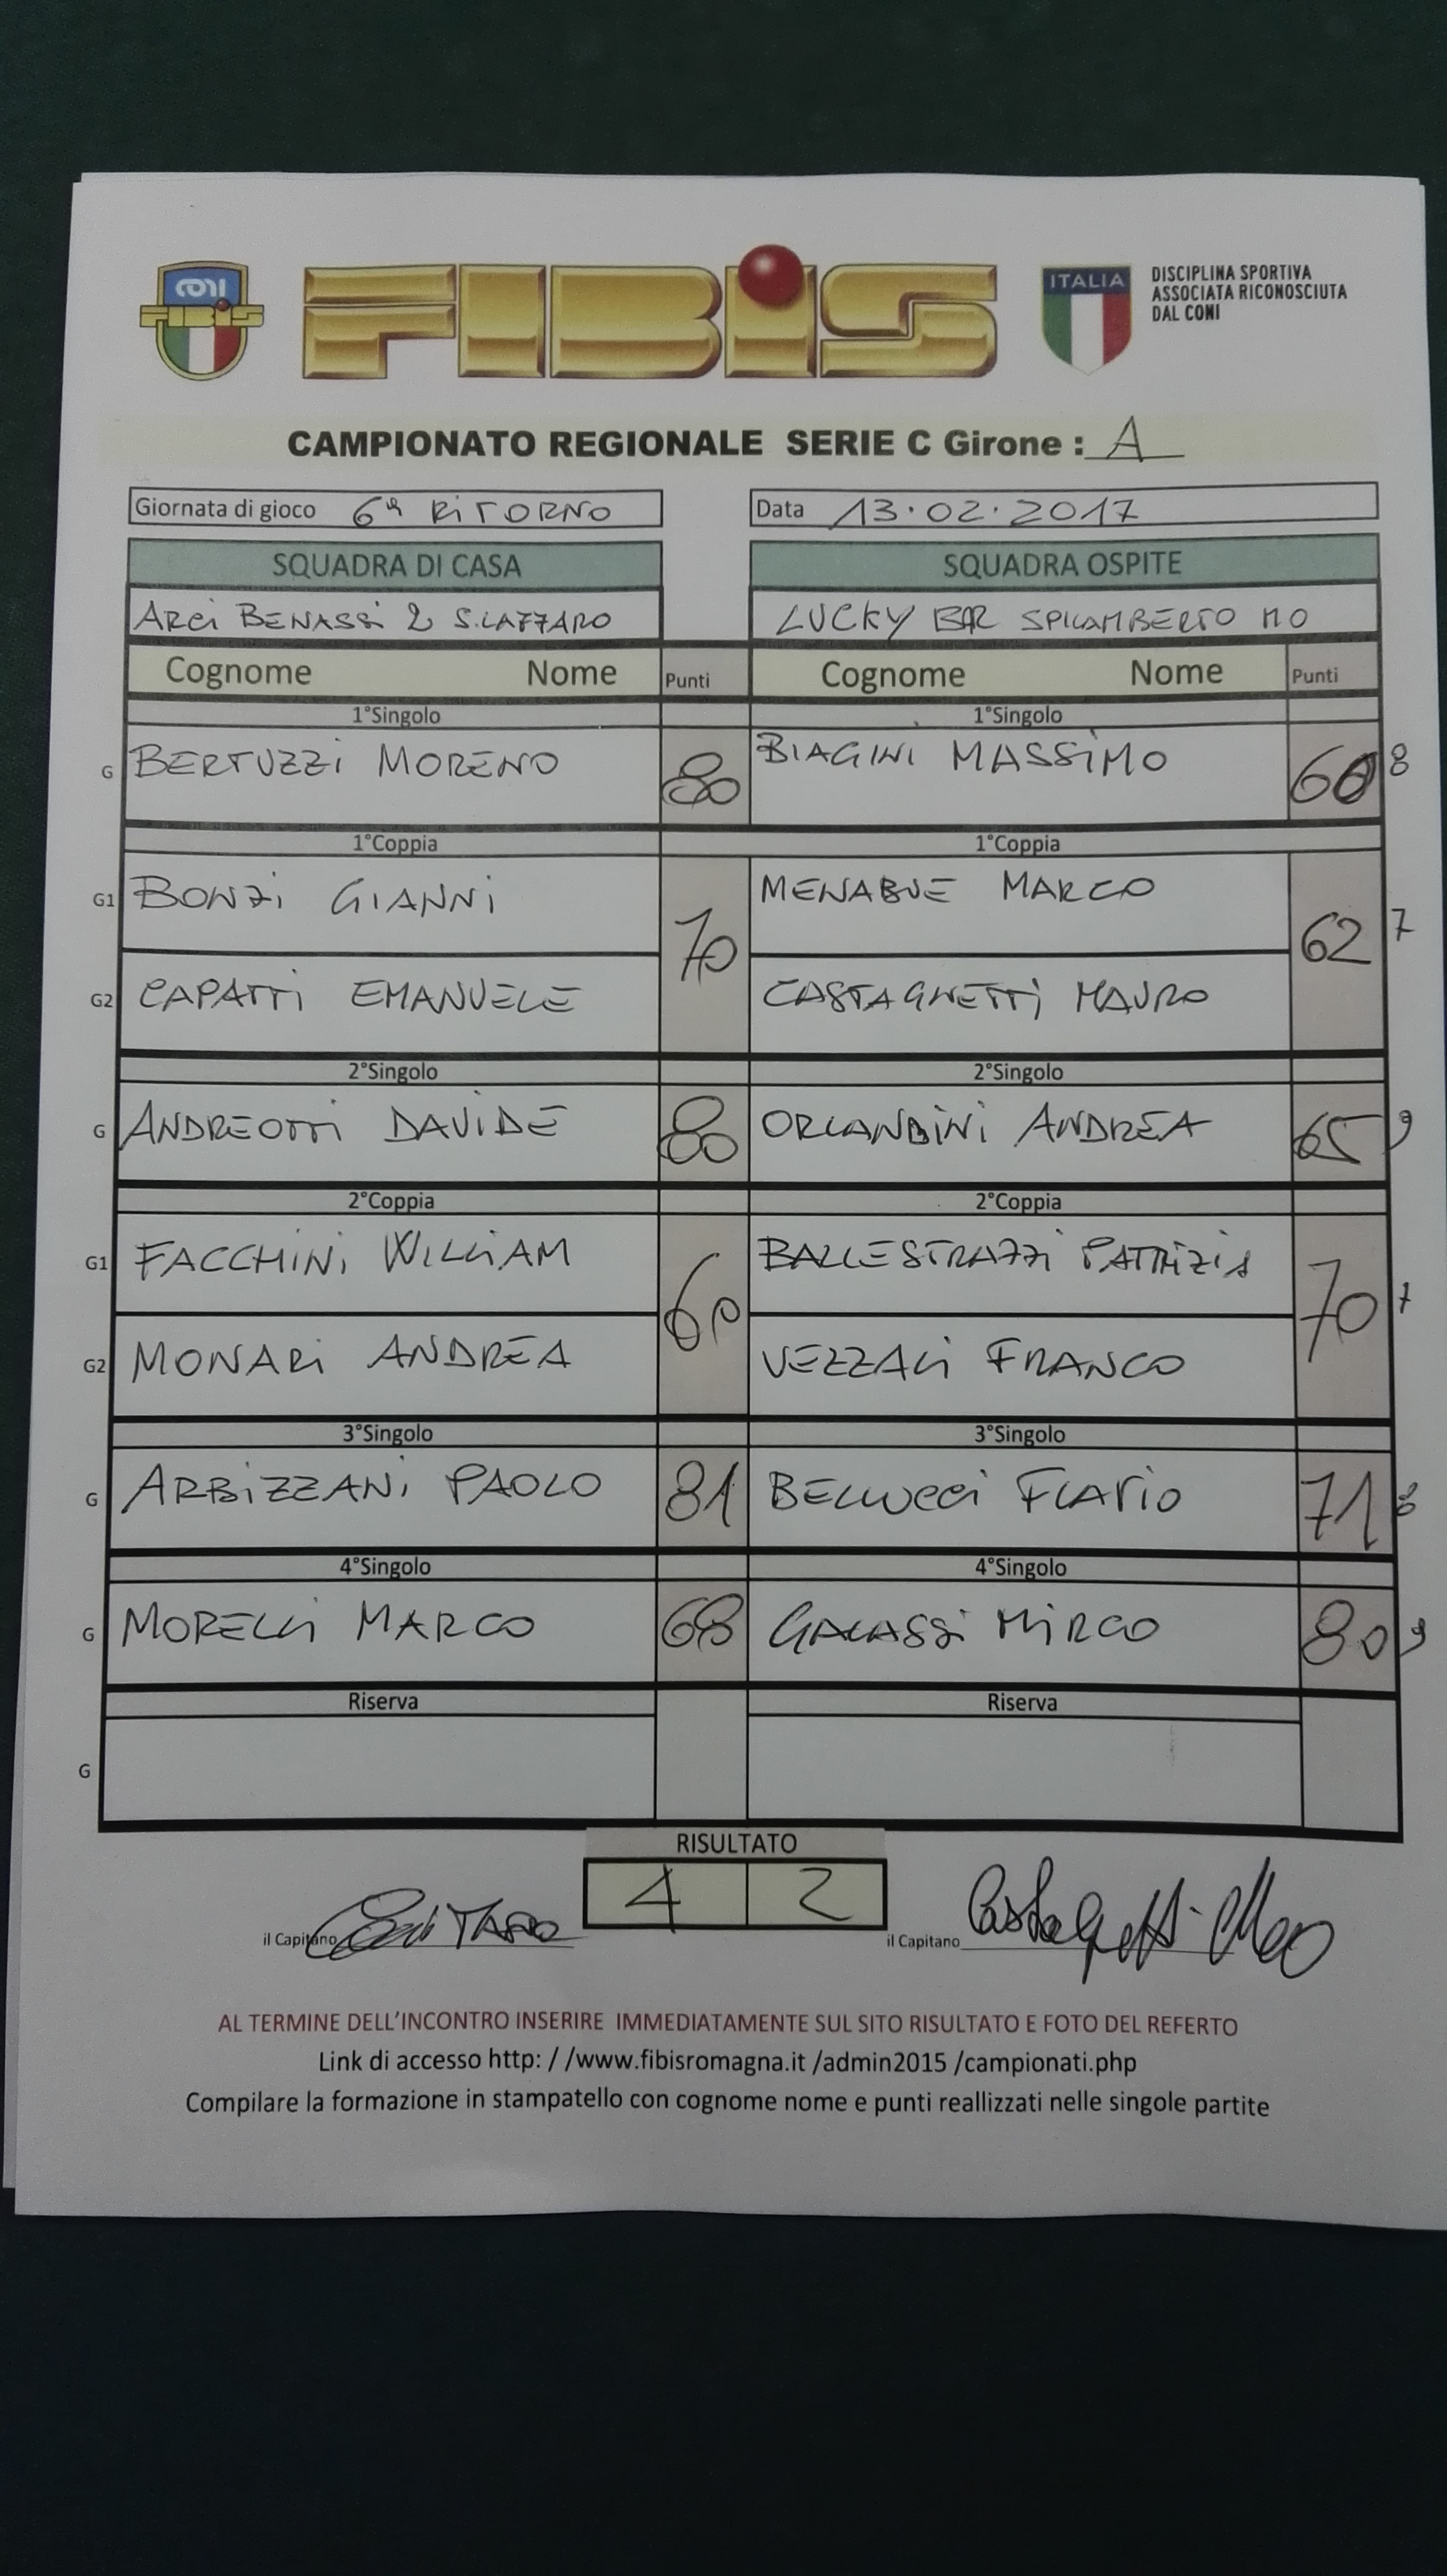 CONI
FIBIS
FIBIS
ITALIA
DISCIPLINA SPORTIVA
ASSOCIATA RICONOSCIUTA
DAL CONI
CAMPIONATO REGIONALE SERIE C Girone : A
Giornata di gioco 6ª RITORNO Data 13.02.2017
SQUADRA DI CASA SQUADRA OSPITE
ARCI BENASSI 2 S.LAZZARO LUCKY BAR SPILAMBERTO MO
Cognome Nome Punti Cognome Nome Punti
1°Singolo 1°Singolo
G BERTUZZI MORENO 80 BIAGINI MASSIMO 8
1°Coppia 1°Coppia
G1 BONZI GIANNI 70 MENABUE MARCO 62 7
G2 CAPATTI EMANUELE CASTAGNETTI MAURO
2°Singolo 2°Singolo
G ANDREOTTI DAVIDE 80 ORLANDINI ANDREA 65 9
2°Coppia 2°Coppia
G1 FACCHINI WILLIAM 60 BALLESTRAZZI PATRIZIA 70 7
G2 MONARI ANDREA VEZZALI FRANCO
3°Singolo 3°Singolo
G ARBIZZANI PAOLO 81 BELLUCCI FLAVIO 71 8
4°Singolo 4°Singolo
G MORELLI MARCO 68 GALASSI MIRCO 80 9
Riserva Riserva
G
RISULTATO
4 2
il Capitano il Capitano
AL TERMINE DELL'INCONTRO INSERIRE IMMEDIATAMENTE SUL SITO RISULTATO E FOTO DEL REFERTO
Link di accesso http: / /www.fibisromagna.it /admin2015 /campionati.php
Compilare la formazione in stampatello con cognome nome e punti reallizzati nelle singole partite